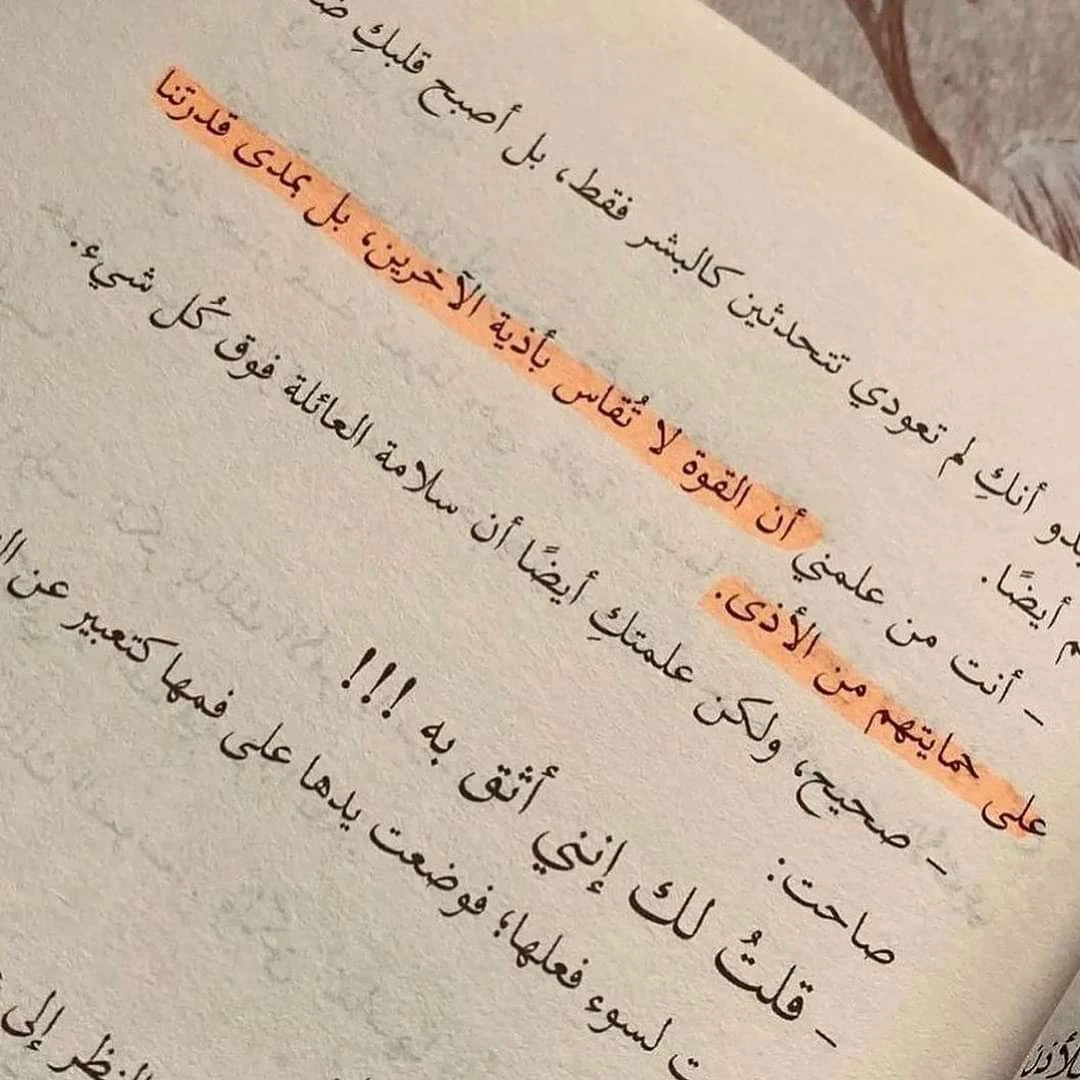 أنكِ لم تعودي تتحدثين كالبشر فقط، بل أصبح قلبكِ
أيضًا.
– أنت من علمني أن القوة لا تُقاس بأذية الآخرين، بل بمدى قدرتنا
على حمايتهم من الأذى.
– صحيح، ولكن علمتكِ أيضًا أن سلامة العائلة فوق كُل شيء.
صاحت:
– قلتُ لك إنني أثق به !!!
لسوء فعلها؛ فوضعت يدها على فمها كتعبير عن
النظر إلى